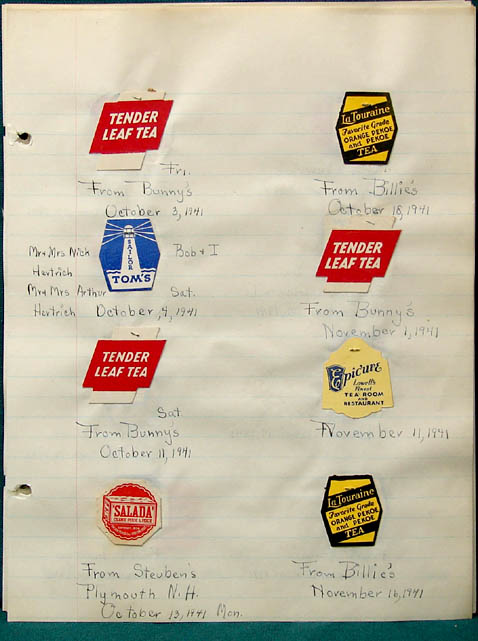 TENDER
LEAF TEA
Fri.
From Bunny's
October 3, 1941
Mr & Mrs. Nick
Hertrich
Mr & Mrs Arthur
Hertrich
SAILOR
TOM'S
Bob & I
Sat.
October 4, 1941
TENDER
LEAF TEA
Sat
From Bunny's
October 11, 1941
"SALADA"
From Steuben's
Plymouth N.H.
October 13, 1941 Mon.
La Touraine
Favorite Grade
ORANGE PEKOE
and PEKOE
TEA
From Billie's
October 18, 1941
TENDER
LEAF TEA
From Bunny's
November 1, 1941
Epicure
Lowell's
Finest
TEA ROOM
AND
RESTAURANT
November 11, 1941
La Touraine
Favorite Grade
ORANGE PEKOE
and PEKOE
TEA
From Billie's
November 16, 1941